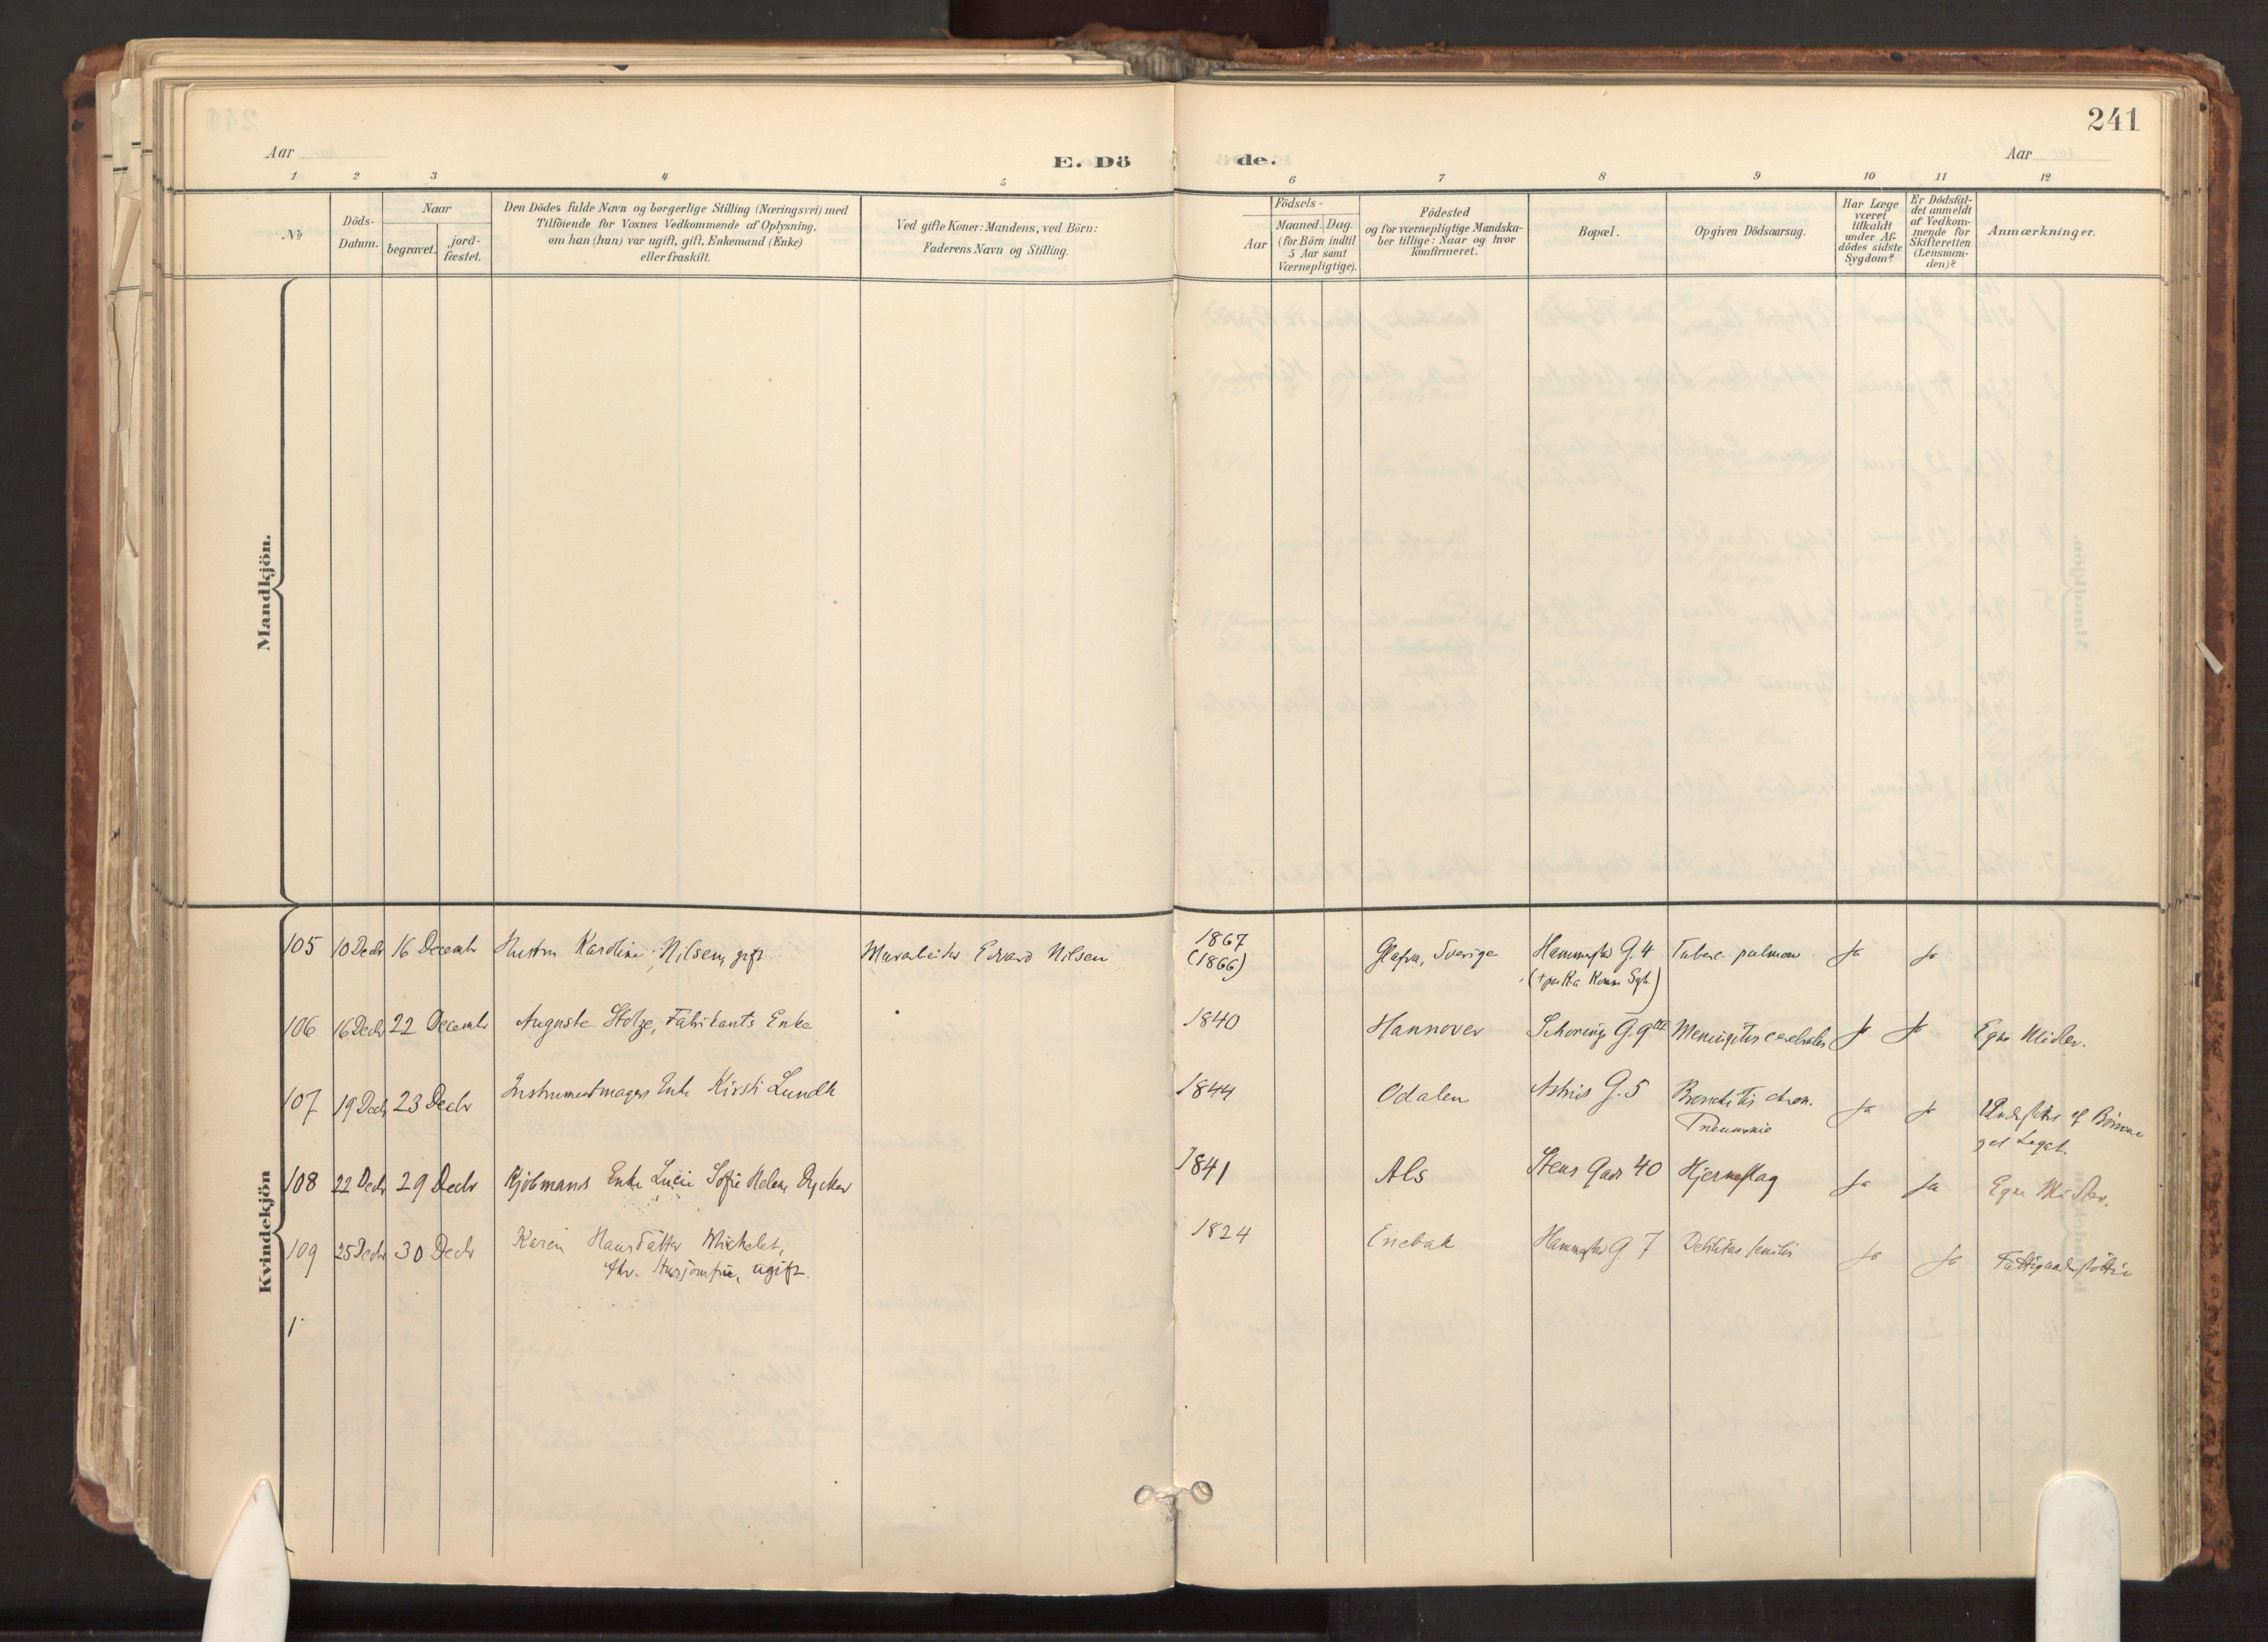 241
Aar
E. Dö de.
Aar
1 2 3 4 5 6 7 8 9 10 11 12
No
Döds-
Datum.
Naar
begravet.
jord-
fæstet.
Den Dödes fulde Navn og borgerlige Stilling (Næringsvei) med
Tilföiende for Voxnes Vedkommende af Oplysning,
om han (hun) var ugift, gift, Enkemand (Enke)
eller fraskilt.
Ved gifte Koner: Mandens, ved Börn:
Faderens Navn og Stilling.
Födsels-
Aar
Maaned. Dag.
(for Börn indtil
5 Aar samt
Værnepligtige).
Födested
og for værnepligtige Mandska-
ber tillige: Naar og hvor
konfirmeret.
Bopæl.
Opgiven Dödsaarsag.
Har Læge
været
tilkaldt
under Af-
dödes sidste
Sygdom?
Er Dödsfal-
det anmeldt
af Vedkom-
mende for
Skifteretten
(Lensman-
den)?
Anmærkninger.
Mandkjön.
Kvindekjön
105 10 Decbr 16 Decembr Hustru Karoline Nilsen, gift Murarbeider Edvard Nilsen 1867 Glafva, Sverige Hammersts G. 4 Tuberc. pulmon Ja Ja
(1866)
106 16 Decbr 22 Decembr Auguste Stolze, Fabrikants Enke 1840 Hannover Schønings G. 9 Meningitis cerebralis Ja Ja Egne Midler.
107 19 Decbr 23 Decbr Instrumentmagers Enke Kirsti Lundh 1844 Odalen Astris G. 5 Bronchitis chron. Ja Ja Understøttes af Børnene
Pneumonie
Legat.
108 22 Decbr 29 Decbr Kjöbmands Enke Lucie Sofie Helene Dycker 1841 Als Stens Gade 40 Hjerneslag Ja Ja Egne Midler.
109 25 Decbr 30 Decbr Karen Hansdatter Michelet, 1824 Enebak Hammersts G. 7 Debilitas senilis Ja Ja Fattigunderstøttelse
fhv. Husjomfru, ugift.
1